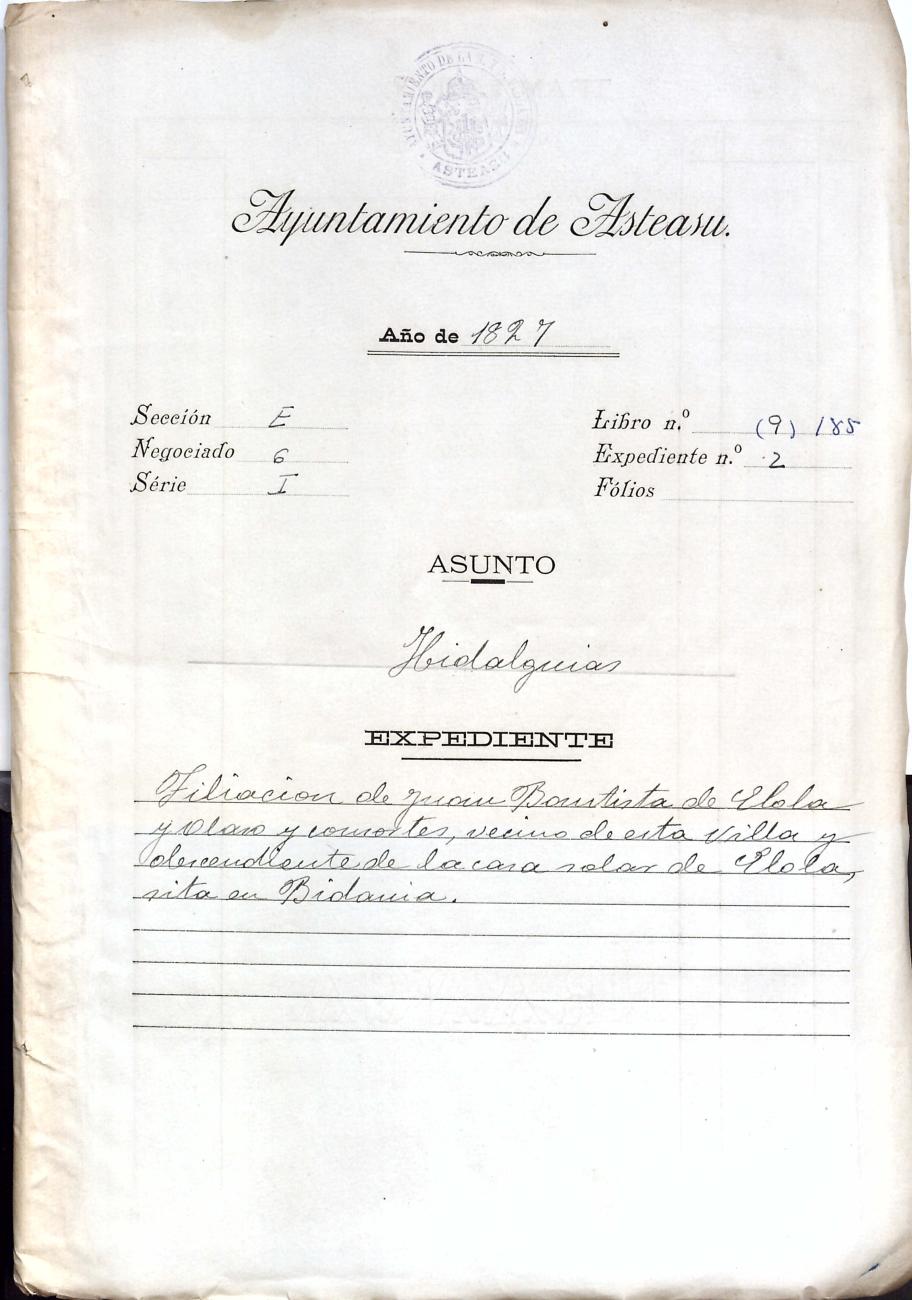 AYUNTAMIENTO DE LA
ASTEASU
Ayuntamiento de Asteasu.
Año de 1827
Sección E
Negociado 6
Série I
Libro n.º (9) 185
Expediente n.º 2
Fólios
ASUNTO
Hidalguias
EXPEDIENTE
Filiacion de Juan Bautista de Elola
y Olaso y consortes, vecino de esta Villa y
descendiente de la casa solar de Elola,
sita en Bidania.